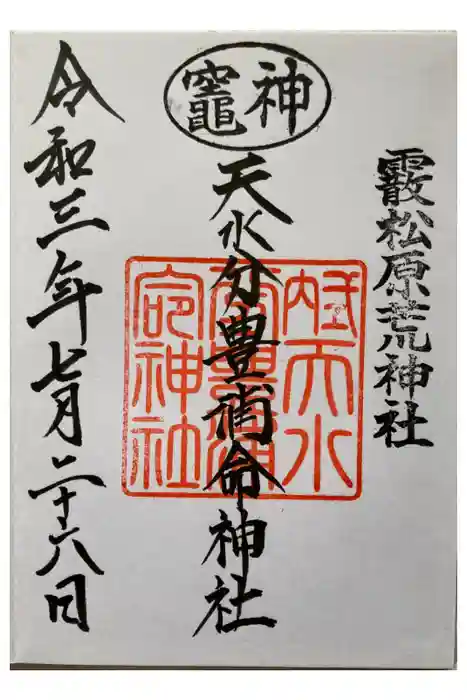 霰松原荒神社
竈神
天水分豊浦命神社
天水
命神社
令和三年七月二十八日